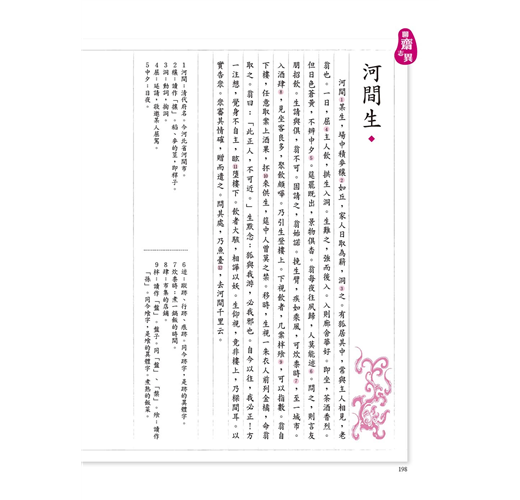 聊齋志異
河間生
河間1某生，場中積麥穰2如丘，家人日取為薪，洞3之。有狐居其中，常與主人相見，老
翁也。一日，屈4主人飲，拱生入洞。生難之，強而後入。入則廊舍華好。即坐，茶酒香烈。
但日色蒼黃，不辨中夕5。筵罷既出，景物俱杳。翁每夜往夙歸，人莫能迹6。問之，則言友
朋招飲。生請與俱，翁不可。固請之，翁始諾。挽生臂，疾如乘風，可炊黍時7，至一城市。
入酒肆8，見坐客良多，聚飲頗嘩。乃引生登樓上。下視飲者，几案柈飧9，可以指數。翁自
下樓，任意取案上酒果，抔來供生，筵中人曾莫之禁。移時，生視一朱衣人前列金橘，命翁
取之。翁曰：「此正人，不可近。」生默念：狐與我游，必我邪也。自今以往，我必正！方
一注想，覺身不自主，眩墮樓下。飲者大駭，相譁以妖。生仰視，竟非樓上，乃樑間耳。以
實告眾。眾審其情確，贈而遣之。問其處，乃魚臺，去河間千里云。
1 河間：清代府名，今河北省河間市。
2 穰：讀作「攘」。稻、麥的莖，即桿子。
3 洞：動詞，掏洞。
4 屈：延請，敬邀某人蒞駕。
5 中夕：日夜。
6 迹：蹤跡、行跡、痕跡。同今跡字，是跡的異體字。
7 炊黍時：煮一鍋飯的時間。
8 肆：市集的店鋪。
9 柈：讀作「盤」，盤子。同「盤」、「槃」。飧：讀作
「孫」。同今飧字，是飧的異體字。煮熟的飯菜。
198